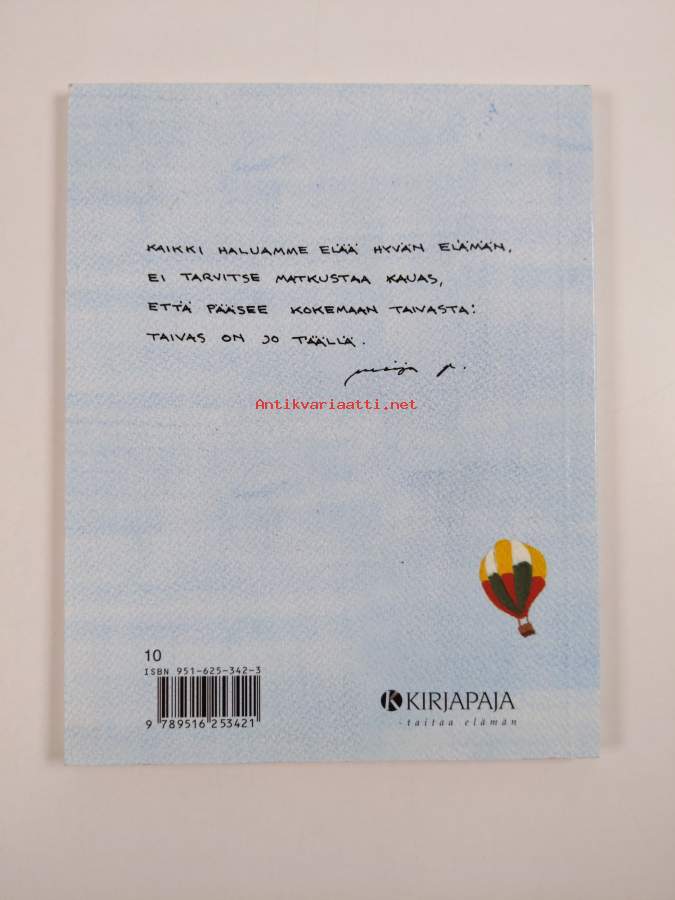 KAIKKI HALUAMME ELÄÄ HYVÄN ELÄMÄN.
EI TARVITSE MATKUSTAA KAUAS,
ETTÄ PÄÄSEE KOKEMAAN TAIVASTA:
TAIVAS ON JO TÄÄLLÄ.
maija p.
Antikvariaatti.net
10
ISBN 951-625-342-3
9 789516 253421
K KIRJAPAJA
-taitaa elämän